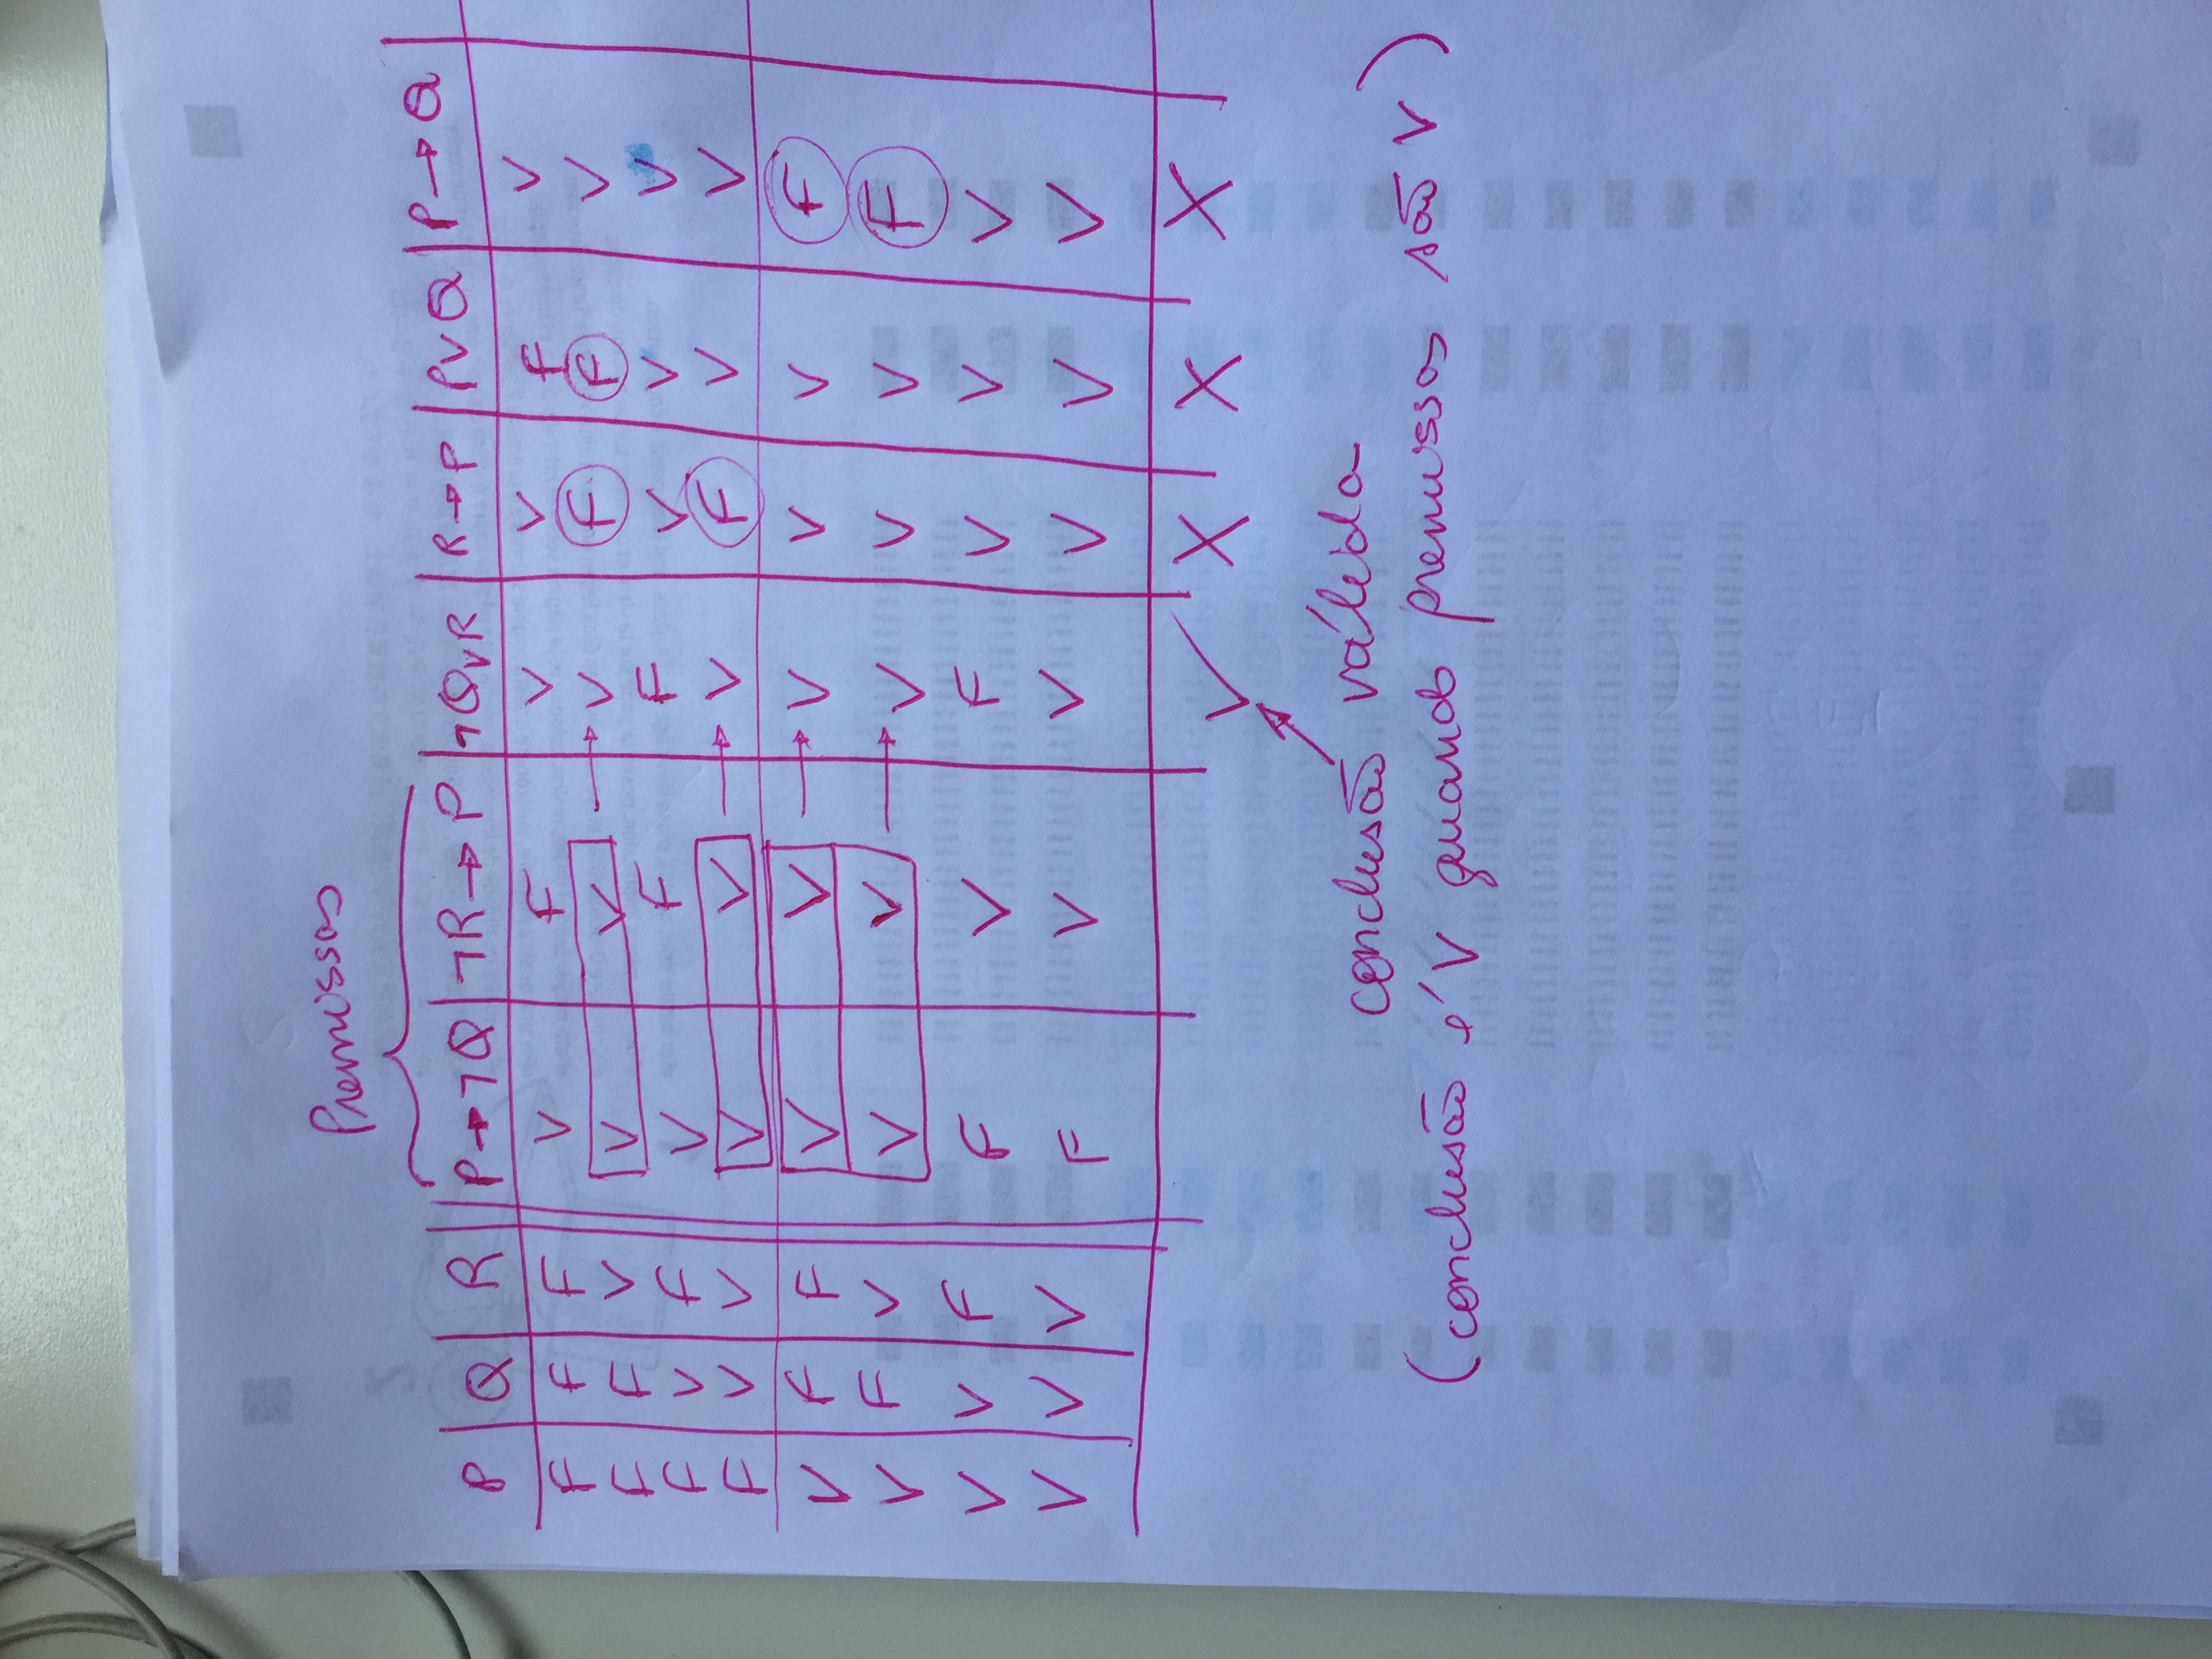 Premissas
P Q R P→¬Q ¬R→P ¬Q∨R R→P P∨Q P→Q
F F F V F V V F V
F F V V V → V F F V
F V F V F F V V V
F V V V V → V F V V
V F F V V → V V V F
V F V V V → V V V F
V V F F V F V V V
V V V F V V V V V
✓ X X X
conclusão válida
(conclusão é V quando premissas são V)